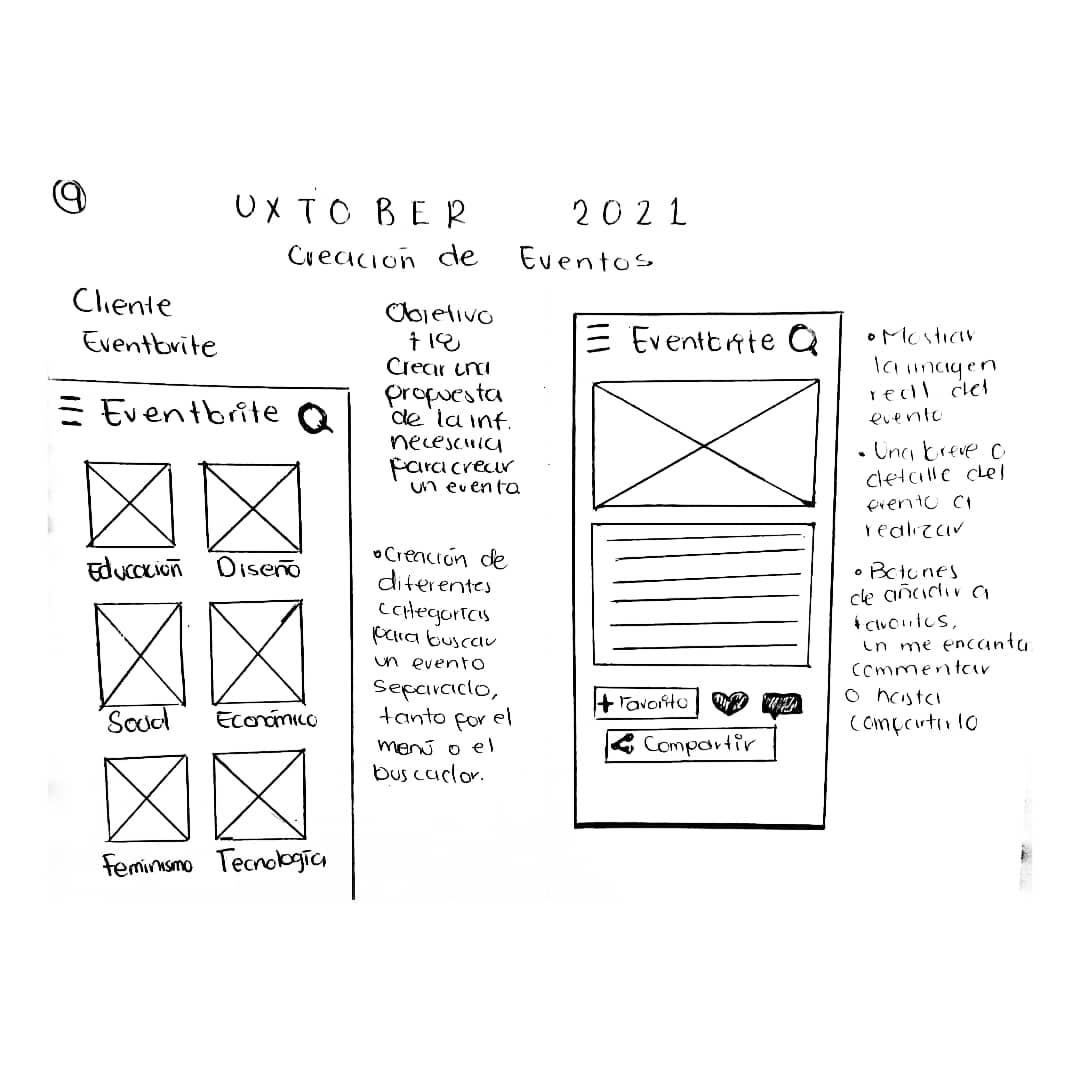 9
UXTOBER 2021
Creación de Eventos
Cliente
Eventbrite
Eventbrite
Educación Diseño
Social Económico
Feminismo Tecnología
Objetivo
Crear una
propuesta
de la inf.
necesaria
para crear
un evento
Creación de
diferentes
categorías
para buscar
un evento
separado,
tanto por el
menú o el
buscador.
Eventbrite
+ Favorito
Compartir
Mostrar
la imagen
real del
evento
Una breve o
detalle del
evento a
realizar
Botones
de añadir a
favoritos,
un me encanta
commentar
o hasta
compartirlo